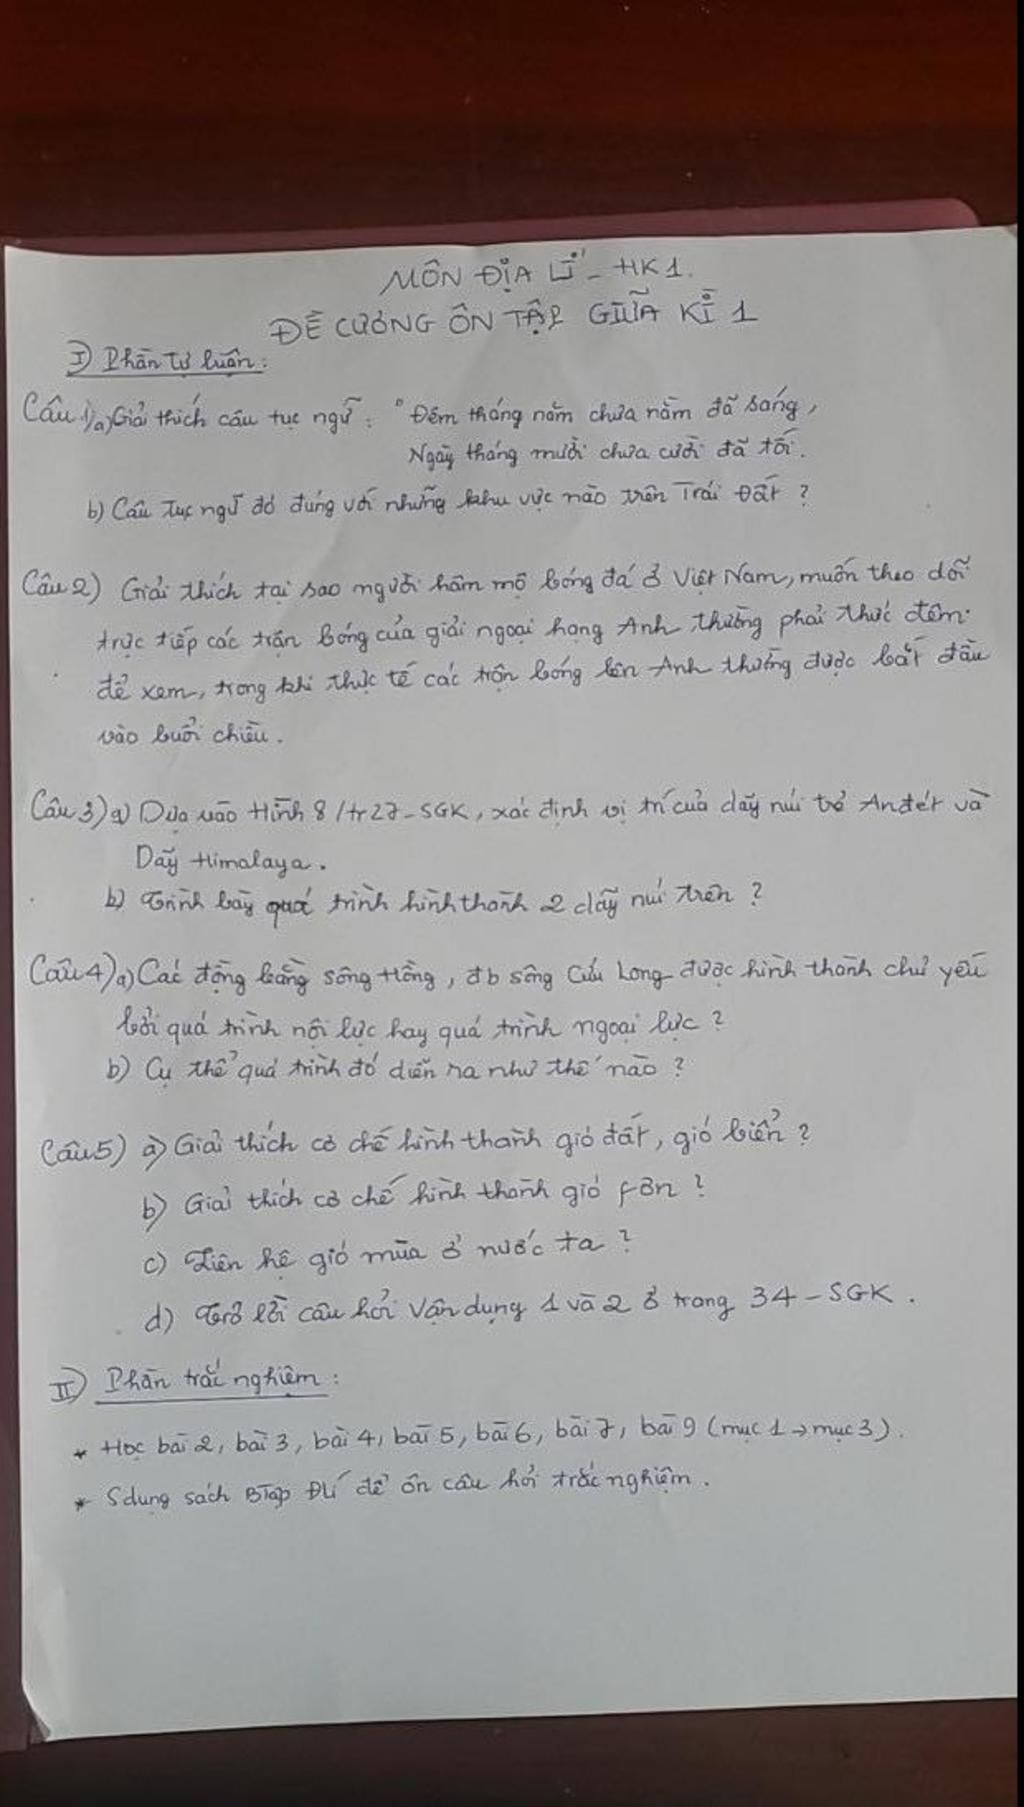 MÔN ĐỊA LÍ - HK1.
ĐỀ CƯƠNG ÔN TẬP GIỮA KÌ 1
I) Phần tự luận:
Câu 1) a) Giải thích câu tục ngữ: "Đêm tháng năm chưa nằm đã sáng,
Ngày tháng mười chưa cười đã tối.
b) Câu tục ngữ đó đúng với những khu vực nào trên Trái Đất ?
Câu 2) Giải thích tại sao người hâm mộ bóng đá ở Việt Nam, muốn theo dõi
trực tiếp các trận bóng của giải ngoại hạng Anh thường phải thức đêm
để xem, trong khi thực tế các trận bóng bên Anh thường được bắt đầu
vào buổi chiều.
Câu 3) a) Dựa vào Hình 8 /tr27-SGK, xác định vị trí của dãy núi trẻ Anđét và
Dãy Himalaya.
b) Trình bày quá trình hình thành 2 dãy núi trên ?
Câu 4) a) Các đồng bằng sông Hồng, đb sông Cửu Long được hình thành chủ yếu
bởi quá trình nội lực hay quá trình ngoại lực ?
b) Cụ thể quá trình đó diễn ra như thế nào ?
Câu 5) a) Giải thích cơ chế hình thành gió đất, gió biển ?
b) Giải thích cơ chế hình thành gió fơn ?
c) Liên hệ gió mùa ở nước ta ?
d) Trả lời câu hỏi Vận dụng 1 và 2 ở trang 34-SGK.
II) Phần trắc nghiệm:
* Học bài 2, bài 3, bài 4, bài 5, bài 6, bài 7, bài 9 (mục 1→mục 3).
* Sdụng sách BTập ĐLí để ôn câu hỏi trắc nghiệm.